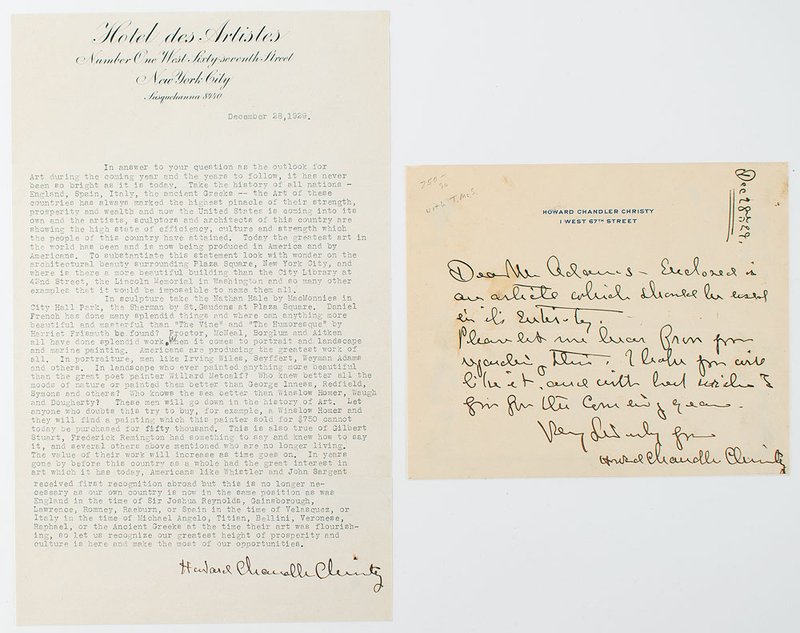 Hotel des Artistes
Number One West Sixty-seventh Street
New York City
Susquehanna 8440
December 28,1929.
In answer to your question as the outlook for
Art during the coming year and the years to follow, it has never
been so bright as it is today. Take the history of all nations -
England, Spain, Italy, the ancient Greeks -- the Art of these
countries has always marked the highest pinacle of their strength,
prosperity and wealth and now the United States is coming into its
own and the artists, sculptors and architects of this country are
showing the high state of efficiency, culture and strength which
the people of this country have attained. Today the greatest art in
the world has been and is now being produced in America and by
Americans. To substantiate this statement look with wonder on the
architectural beauty surrounding Plaza Square, New York City, and
where is there a more beautiful building than the City Library at
42nd Street, the Lincoln Memorial in Washington and so many other
examples that it would be impossible to name them all.
In sculpture take the Nathan Hale by MacMonnies in
City Hall Park, the Sherman by St. Gaudens at Plaza Square. Daniel
French has done many splendid things and where can anything more
beautiful and masterful than "The Vine" and "The Humoresque" by
Harriet Frismuth be found? Proctor, McNeal, Borglum and Aitken
all have done splendid work. When it comes to portrait and landscape
and marine painting. Americans are producing the greatest work of
all. In portraiture, men like Irving Wiles, Seyffert, Wayman Adams
and others. In landscape who ever painted anything more beautiful
than the great poet painter Willard Metcalf? Who knew better all the
moods of nature or painted them better than George Inness, Redfield,
Symons and others? Who knows the sea better than Winslow Homer, Waugh
and Dougherty? These men will go down in the history of Art. Let
anyone who doubts this try to buy, for example, a Winslow Homer and
they will find a painting which this painter sold for $750 cannot
today be purchased for fifty thousand. This is also true of Gilbert
Stuart, Frederick Remington had something to say and knew how to say
it, and several others above mentioned who are no longer living.
The value of their work will increase as time goes on. In years
gone by before this country as a whole had the great interest in
art which it has today, Americans like Whistler and John Sargent
received first recognition abroad but this is no longer ne-
cessary as our own country is now in the same position as was
England in the time of Sir Joshua Reynolds, Gainsborough,
Lawrence, Romney, Raeburn, or Spain in the time of Velasquez, or
Italy in the time of Michael Angelo, Titian, Bellini, Veronese,
Raphael, or the Ancient Greeks at the time their art was flourish-
ing, so let us recognize our greatest height of prosperity and
culture is here and make the most of our opportunities.
Howard Chandler Christy
750-
with T.M.S.
Dec 28th 29.
HOWARD CHANDLER CHRISTY
1 WEST 67TH STREET
Dear Mr Adams - Enclosed is
an article which should be used
in its entirety.
Please let me hear from you
regarding this. I hope you will
like it, and with best wishes to
you for the coming year.
Very Sincerely yours
Howard Chandler Christy